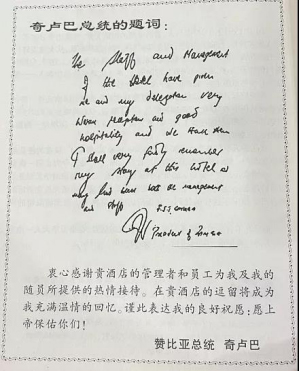 奇卢巴总统的题词：
The Staff and Management
of the Hotel have given
me and my delegation very
warm reception and good
hospitality and we thank them
I shall very fondly remember
my stay at this Hotel
and staff
President of Zambia
衷心感谢贵酒店的管理者和员工为我及我的
随员所提供的热情接待。在贵酒店的逗留将成为
我充满温情的回忆。谨此表达我的良好祝愿：愿上
帝保佑你们！
赞比亚总统 奇卢巴